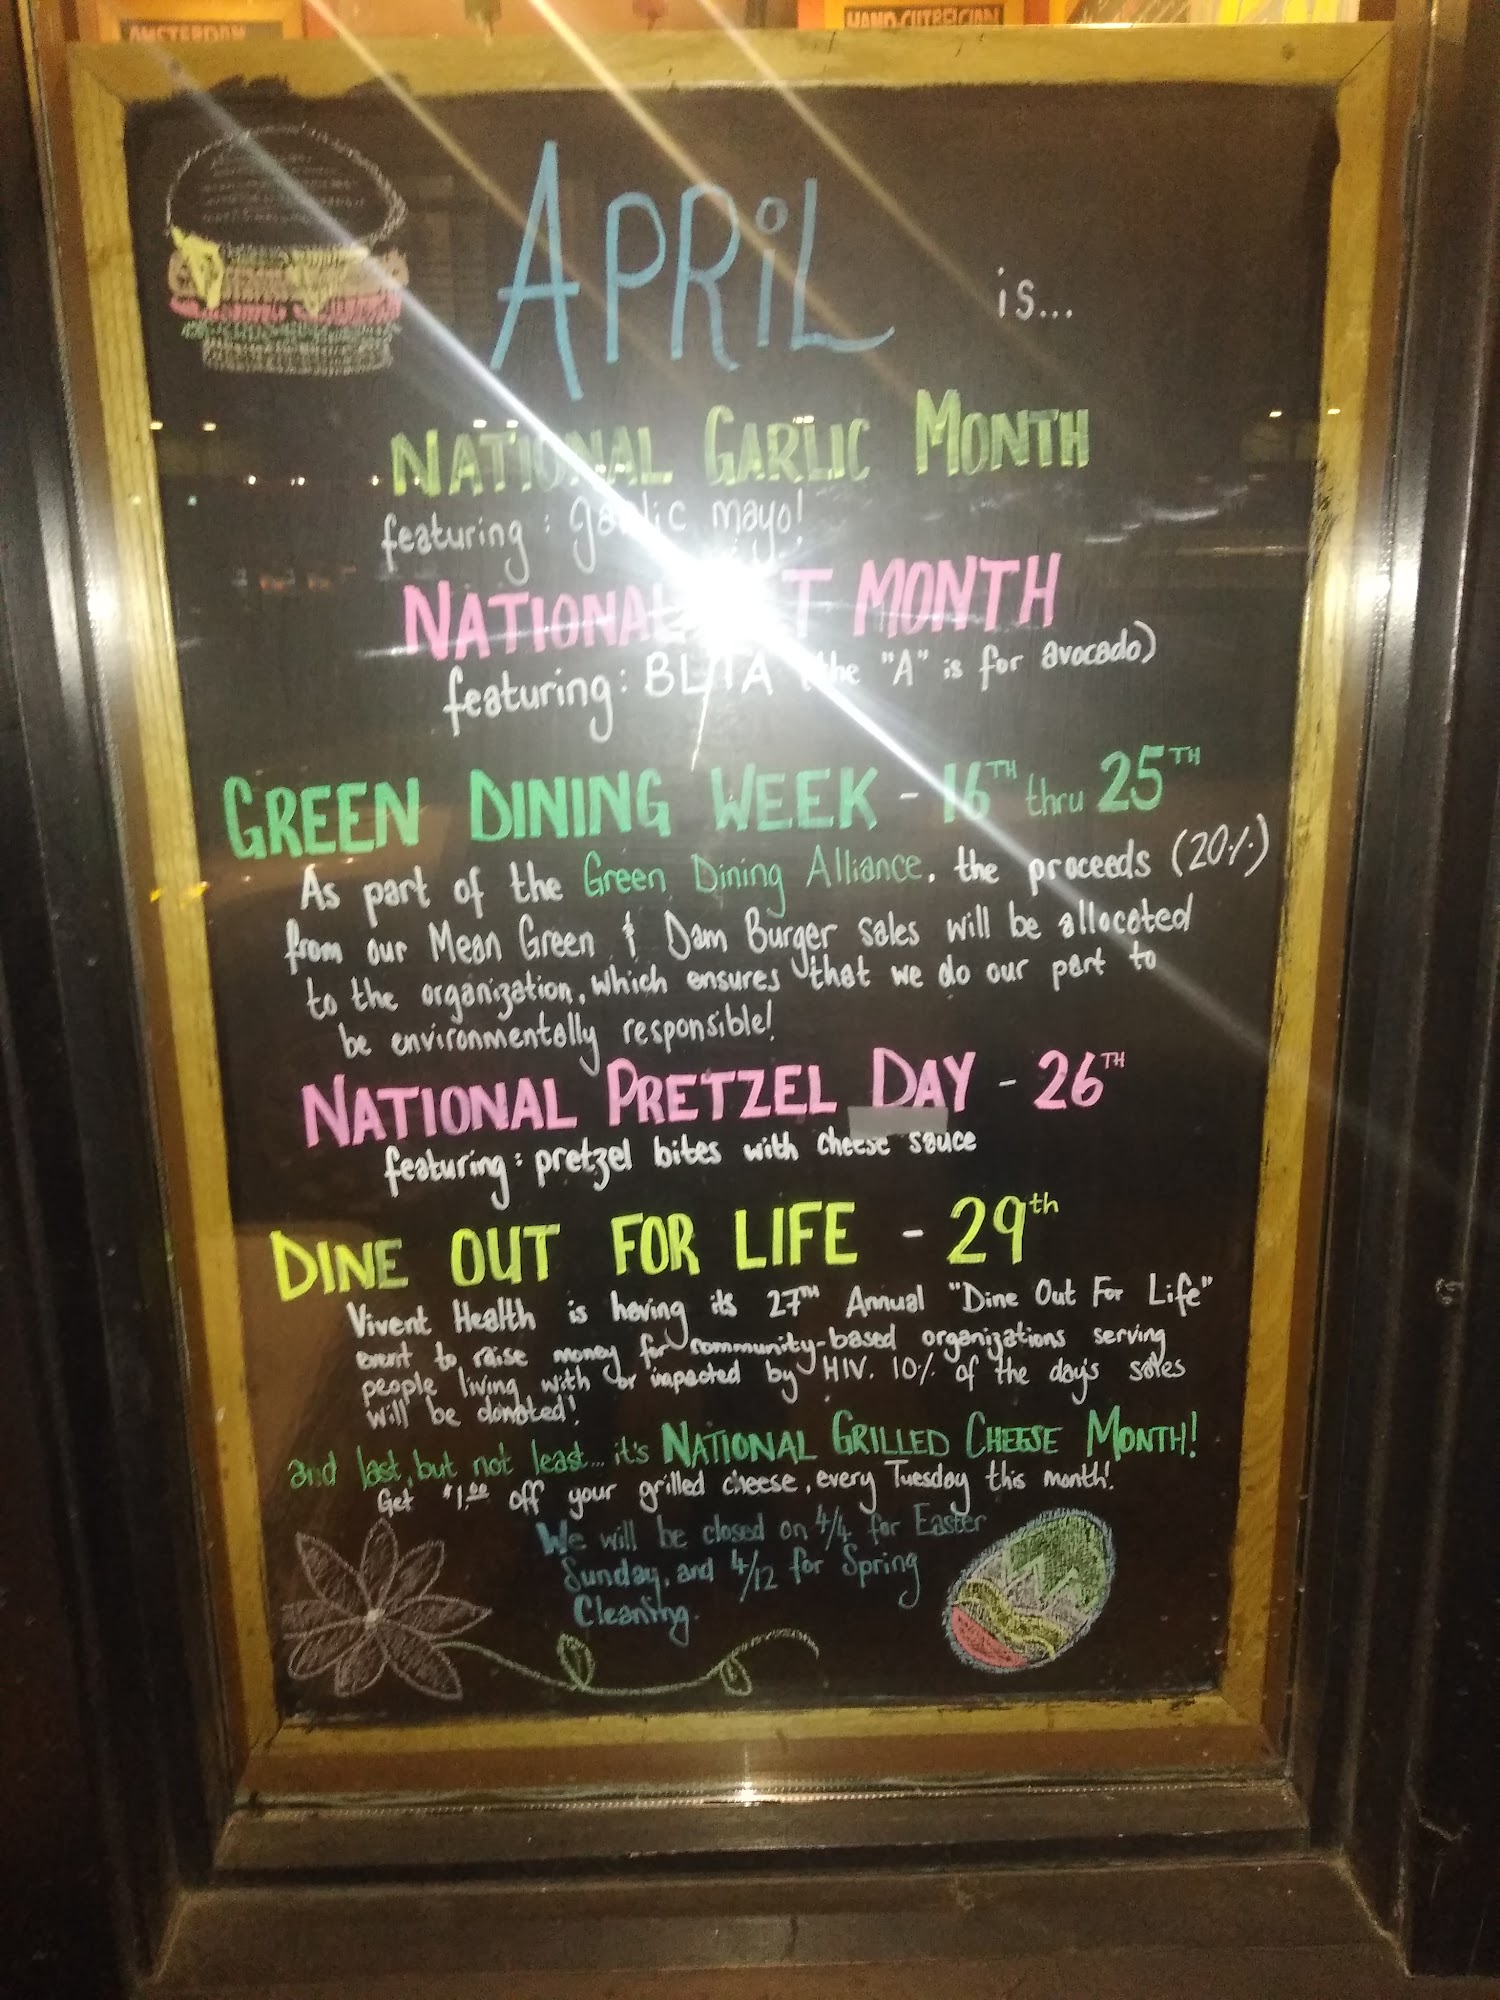 AMSTERDAM
HAND-CUT BELGIAN
APRiL is...
NATIONAL GARLIC MONTH
featuring: garlic mayo!
NATIONAL MONTH
featuring: BLTA (the "A" is for avocado)
GREEN DINING WEEK - 16TH thru 25TH
As part of the Green Dining Alliance, the proceeds (20%)
from our Mean Green & Dam Burger sales will be allocated
to the organization, which ensures that we do our part to
be environmentally responsible!
NATIONAL PRETZEL DAY - 26TH
featuring: pretzel bites with cheese sauce
DINE OUT FOR LIFE - 29th
Vivent Health is having its 27TH Annual "Dine Out For Life"
event to raise money for community-based organizations serving
people living with or impacted by HIV. 10% of the day's sales
will be donated!
and last, but not least... it's NATIONAL GRILLED CHEESE MONTH!
Get $1.00 off your grilled cheese, every Tuesday this month!
We will be closed on 4/4 for Easter
Sunday, and 4/12 for Spring
Cleaning.